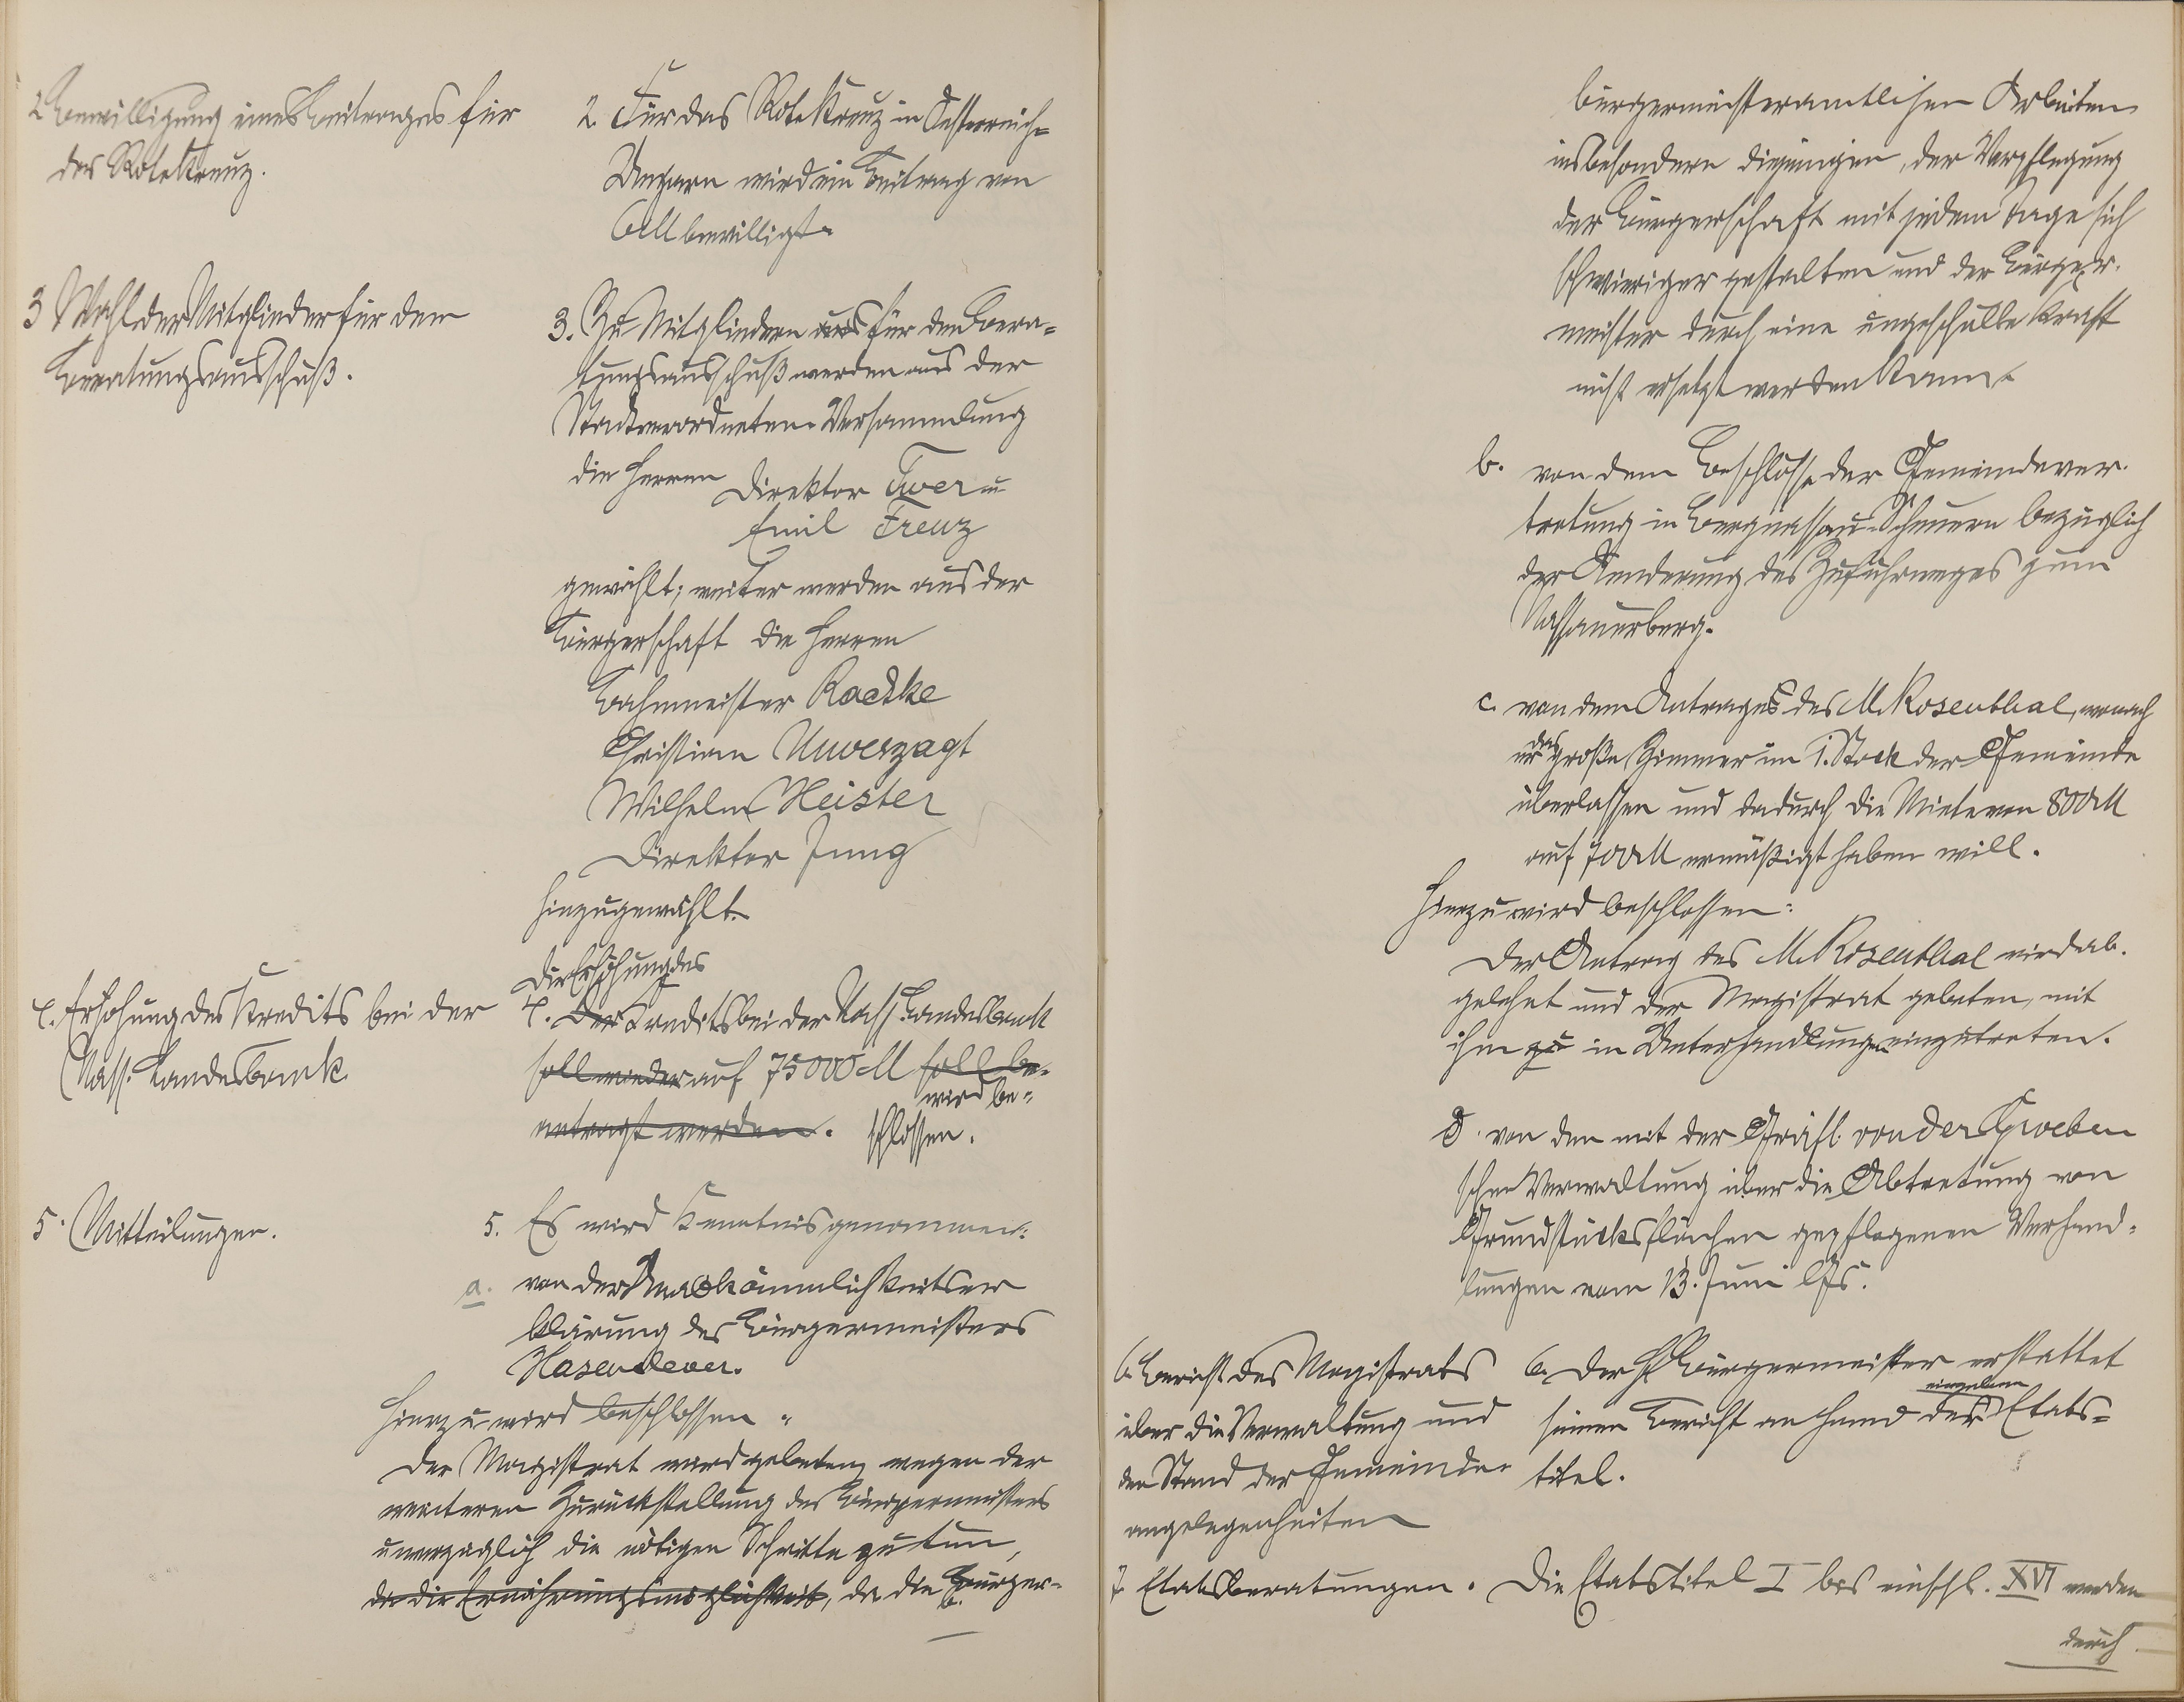 2 Bewilligung eines Beitrages für
das Rote Kreuz.
2. Für das Rote Kreuz in Oesterreich-
Ungarn wird ein Beitrag von
M bewilligt.
3 Wahl der Mitglieder für den
Beratungsausschuß.
3. Zu Mitgliedern aus für den Bera-
tungsausschuß werden aus der
Stadtverordneten-Versammlung
die Herren Direktor Twer u
Emil Treuz
gewählt; weiter werden aus der
Bürgerschaft die Herren
Bahnmeister Raedke
Christian Unverzagt
Wilhelm Heister
Direktor Jung
hinzugewählt.
4. Erhöhung des Kredits bei der
Nass. Landesbank.
Die Erhöhung des
4. Der Kredits bei der Nass. Landesbank
soll wieder auf 75000 M soll be-
wird be-
antragt werden. schlossen.
5. Mitteilungen.
5. Es wird Kenntnis genommen:
a. von der Unabkömmlichkeitser
klärung des Bürgermeisters
Hasenclever.
Hierzu wird beschlossen:
Der Magistrat wird gebeten, wegen der
weiteren Zurückstellung des Bürgermeisters
unverzüglich die nötigen Schritte zu tun,
da die Ernährungsmöglichkeit, da die Bürger-
bürgermeisteramtlichen Arbeiten
insbesondere diejenigen, der Verpflegung
der Bürgerschaft mit jedem Tage sich
schwieriger gestalten und der Bürger-
meister durch eine ungeschulte Kraft
nicht ersetzt werden kann.
b. von dem Beschlosse der Gemeindever-
tretung in Bergnassau-Scheuern bezüglich
der Aenderung des Zufuhrweges zum
Nassauerberg.
c. von dem Antrages des M. Rosenthal, wonach
das
er große Zimmer im 1. Stock der Gemeinde
überlassen und dadurch die Miete von 800 M
auf 700 M ermäßigt haben will.
Hierzu wird beschlossen:
Der Antrag des M. Rosenthal wird ab-
gelehnt und der Magistrat gebeten, mit
ihm zu in Unterhandlungen einzutreten.
d. von den mit der Gräfl. von der Groeben
schen Verwaltung über die Abtretung von
Grundstücksflächen gepflogenen Verhand-
lungen vom 13. Juni lfs.
6. Bericht des Magistrats
über die Verwaltung und
den Stand der Gemeinde-
angelegenheiten
6. Der H. Bürgermeister erstattet
einzelnen
seinen Bericht an Hand der Etats-
titel.
7. Etatsberatungen.
Die Etatstitel I bis einschl. XVI werden
durch